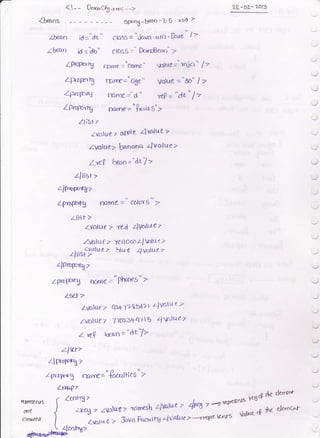 <!-- DemoCfg.xml -->
22-02-2013
<beans - - - - - - - - - spring-bean-2.5.xsd >
<bean id="dt" class="java.util.Date" />
<bean id="db" class="DemoBean">
<property name="name" value="" />
<property name="age" value="30" />
<property name="d" ref="dt" />
<property name="fruits">
<list>
<value> apple </value>
<value> banana </value>
<ref bean="dt" />
</list>
</property>
<property name="colors">
<list>
<value> red </value>
<value> yellow </value>
<value> blue </value>
</list>
</property>
<property name="phones">
<set>
<value> </value>
<value> </value>
<ref bean="dt"/>
</set>
</property>
<property name="faculties">
<map>
<entry>
<key> <value> ramesh </value> </key> → represents key of the element
<value> Java </value> → represents value of the element
</entry>
represents
one
element